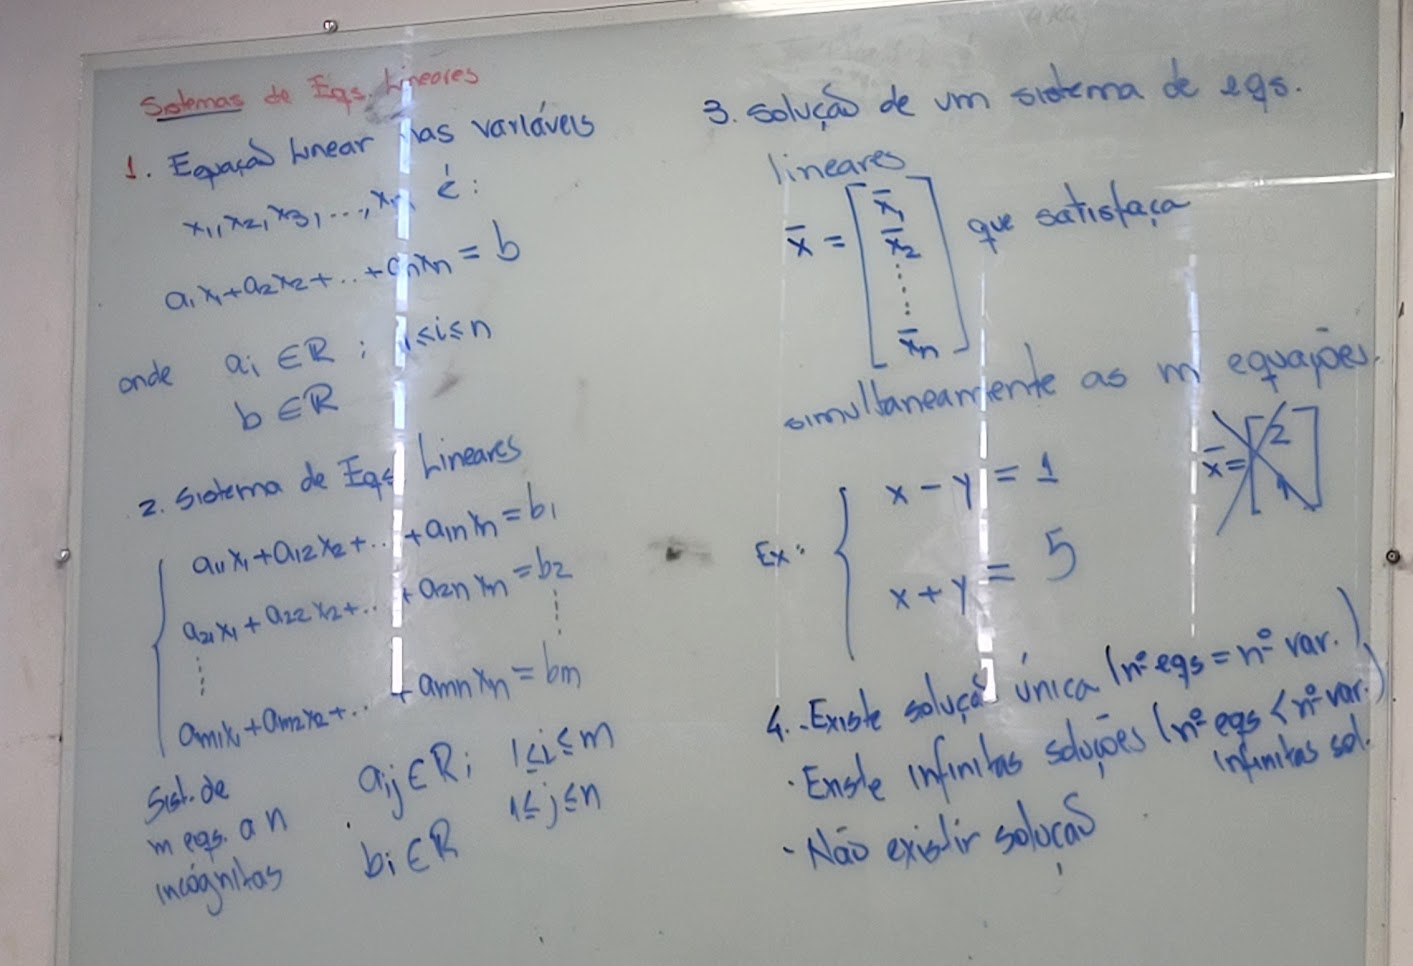 Sistemas de Eqs. Lineares
1. Equação Linear nas variáveis
x₁, x₂, x₃, ..., xₙ é:
a₁x₁+a₂x₂+...+aₙxₙ = b
onde aᵢ ∈ ℝ ; 1≤i≤n
b ∈ ℝ
2. Sistema de Eqs Lineares
a₁₁x₁+a₁₂x₂+...+a₁ₙxₙ=b₁
a₂₁x₁+a₂₂x₂+...+a₂ₙxₙ=b₂
⋮ ⋮
aₘ₁x₁+aₘ₂x₂+...+aₘₙxₙ=bₘ
Sist. de
m eqs. a n
incógnitas
aᵢⱼ∈ℝ; 1≤i≤m
1≤j≤n
bᵢ∈ℝ
3. Solução de um sistema de eqs.
lineares
x̄ = [x̄₁ x̄₂ ⋮ x̄ₙ] que satisfaça
simultaneamente as m equações.
x̄=[2
Ex: { x - y = 1
x + y = 5
4. . Existe solução única (nº eqs = nº var.)
. Existe infinitas soluções (nº eqs < nº var.)
infinitas sol.
- Não existir solução